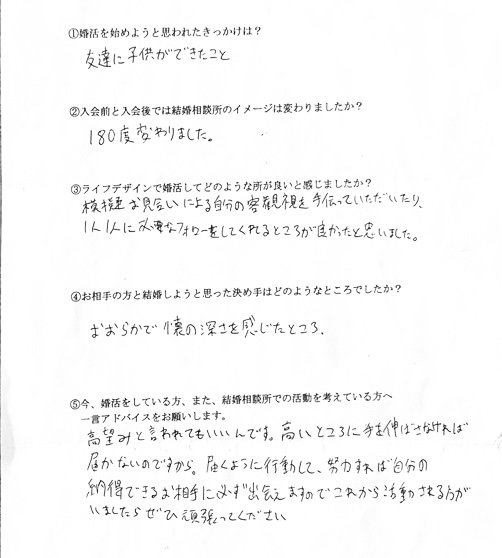 ①婚活を始めようと思われたきっかけは？
友達に子供ができたこと
②入会前と入会後では結婚相談所のイメージは変わりましたか？
180度変わりました。
③ライフデザインで婚活してどのような所が良いと感じましたか？
模擬お見合いによる自分の客観視を手伝っていただいたり、
1人1人に必要なフォローをしてくれるところが良かったと思いました。
④お相手の方と結婚しようと思った決め手はどのようなところでしたか？
おおらかで懐の深さを感じたところ。
⑤今、婚活をしている方、また、結婚相談所での活動を考えている方へ
一言アドバイスをお願いします。
高望みと言われてもいいんです。高いところに手を伸ばさなければ
届かないのですから。届くように行動して、努力すれば自分の
納得できるお相手に必ず出会えますのでこれから活動される方が
いましたらぜひ頑張ってください